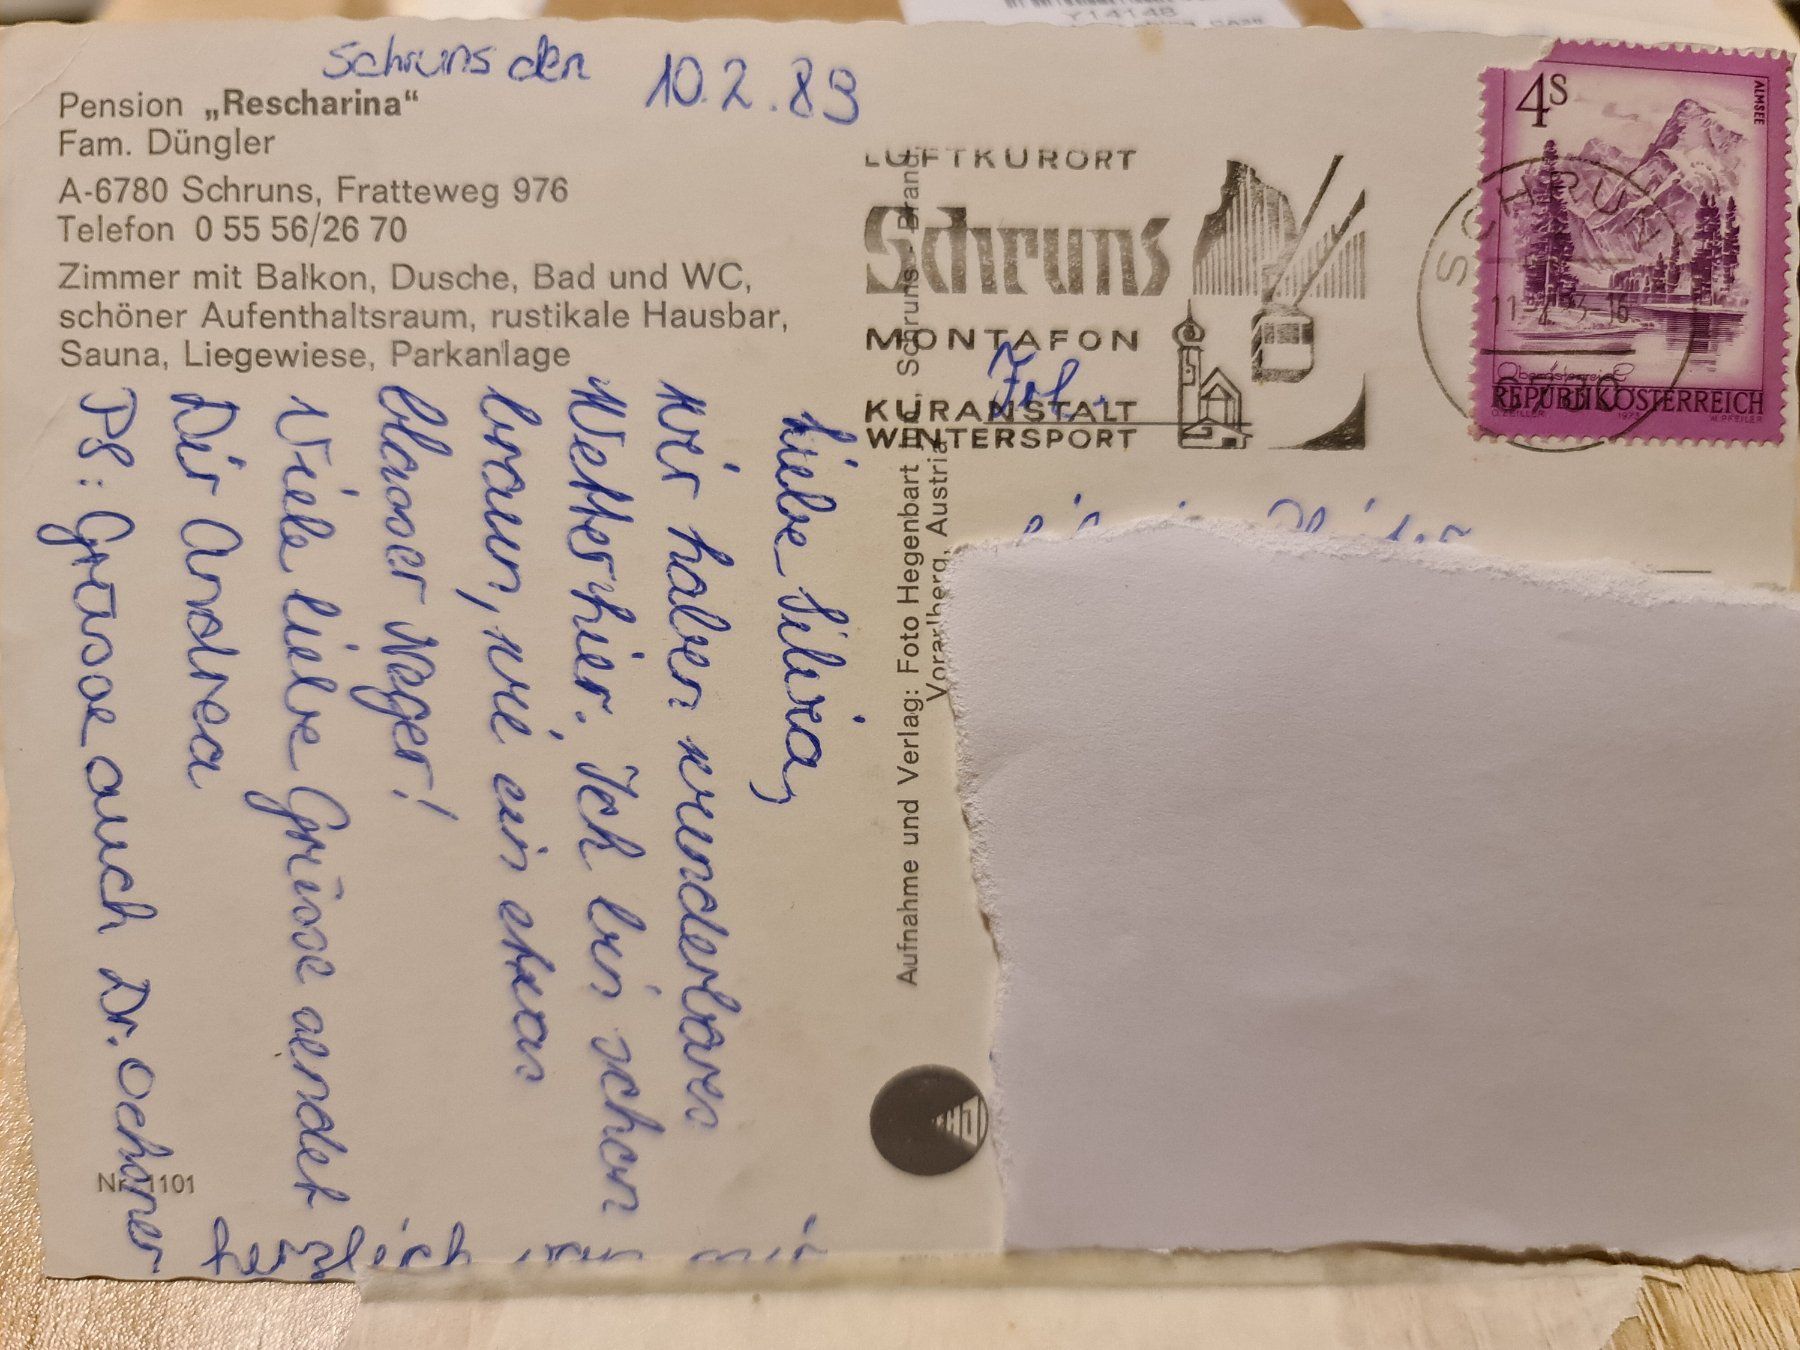 Schruns den 10.2.83
Pension „Rescharina“
Fam. Düngler
A-6780 Schruns, Fratteweg 976
Telefon 0 55 56/26 70
Zimmer mit Balkon, Dusche, Bad und WC,
schöner Aufenthaltsraum, rustikale Hausbar,
Sauna, Liegewiese, Parkanlage
Liebe Silvia,
Wir haben wunderbares
Wetter hier. Ich bin schon
braun, wie ein etwas
blasser Neger!
Viele liebe Grüsse sendet
Dir Andrea
PS: Grüsse auch Dr. Ochsner
herzlich von mir
Nr. 1101
Aufnahme und Verlag: Foto Hegenbart Schruns Brand
Vorarlberg, Austria
LUFTKURORT
Schruns
MONTAFON
KURANSTALT
WINTERSPORT
Frl.
4S
ALMSEE
SCHRUNS
6780
Oberösterreich
REPUBLIK ÖSTERREICH
O. ZEILLER
W. PFEILER
HJ